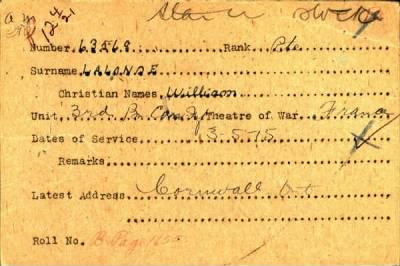 Number 63568 Rank Pte
Surname LALONDE
Christian Names William
Unit, 3rd. Bn Can. Inf Theatre of War. France
Dates of Service 3-5-15
Remarks
Latest Address Cornwall Ont
Roll No. B Page